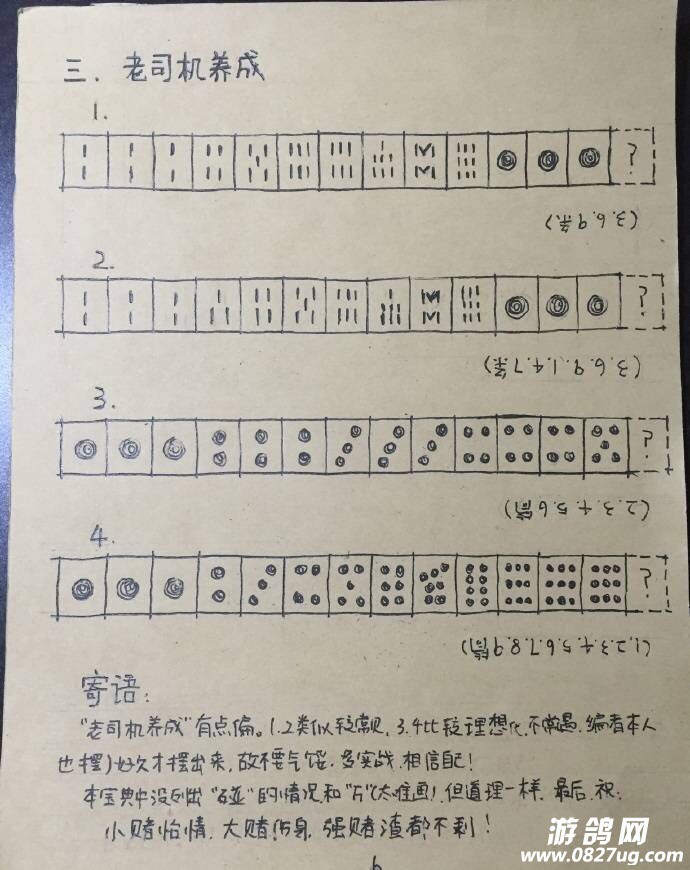 三. 老司机养成
1.
?
(3.6.9条)
2.
?
(3.6.9.1.4.7条)
3.
?
(2.3.4.5.6筒)
4.
?
(1.2.3.4.5.6.7.8.9筒)
寄语:
"老司机养成"有点偏。1.2类似较常规, 3.4比较理想化,不常遇.编者本人
也摆了好久才摆出来,故不要气馁.多实战.相信自己!
本宝典中没列出"碰"的情况和"万"(太难画).但道理一样.最后.祝:
小赌怡情.大赌伤身,强赌渣都不剩!
6
游鸽网
www.0827ug.com